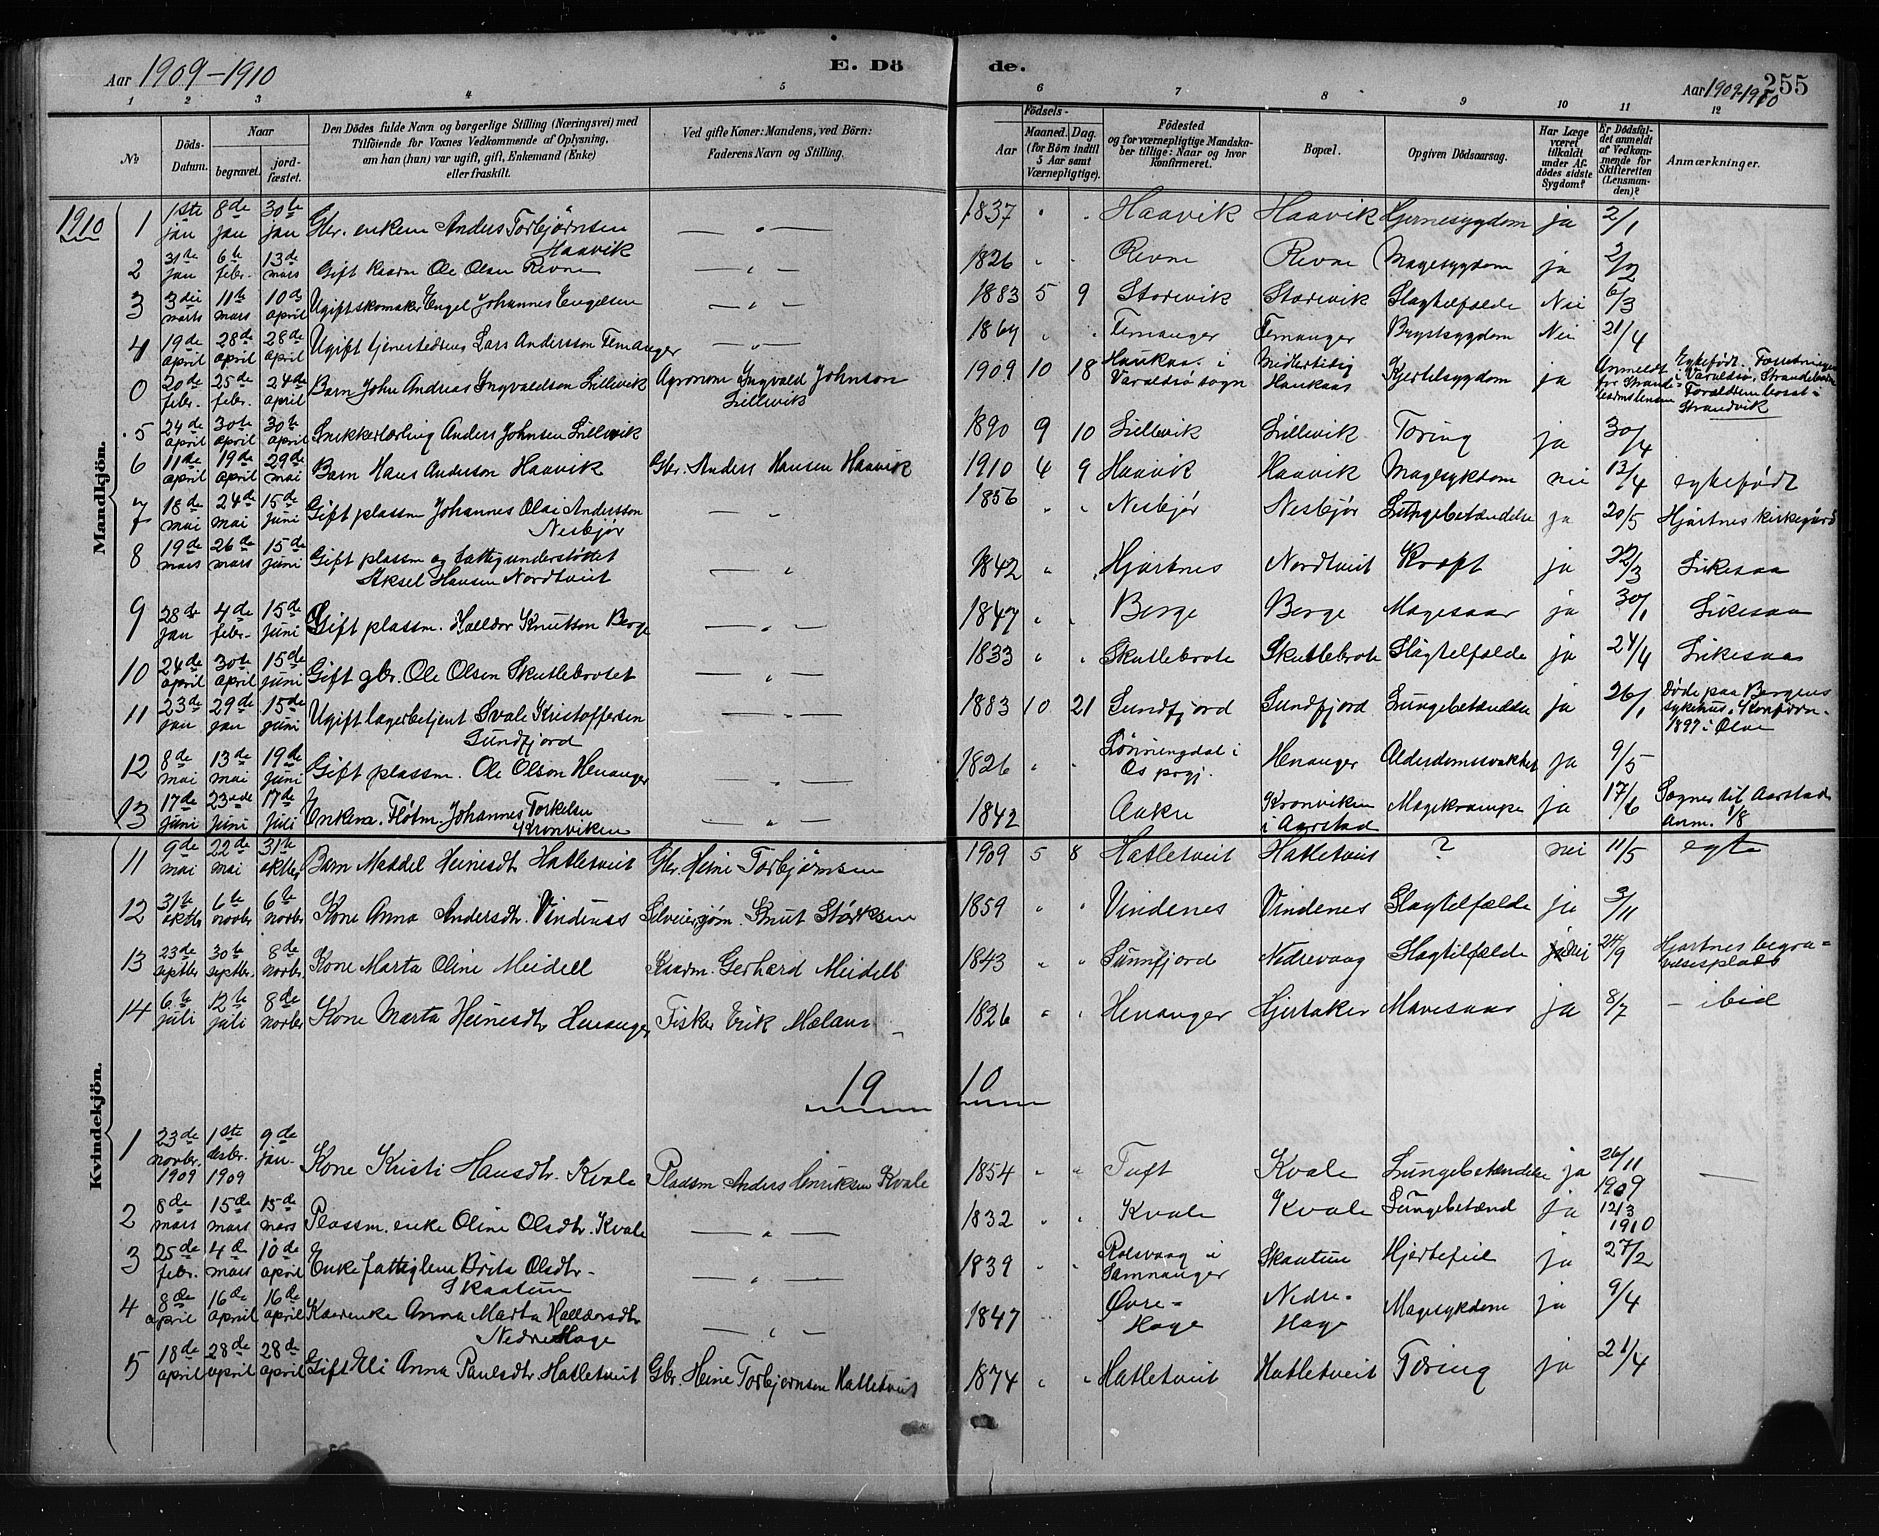 Aar 1909-1910
E. Dö
de.
Aar 1909-1910
255
1 2 3 4 5 6 7 8 9 10 11 12
No
Döds-Datum.
Naar
begravet.
jord-fæstet.
Den Dödes fulde Navn og borgerlige Stilling (Næringsvei) med
Tilföiende for Voxnes Vedkommende af Oplysning,
om han (hun) var ugift, gift, Enkemand (Enke)
eller fraskilt.
Ved gifte Koner: Mandens, ved Börn:
Faderens Navn og Stilling.
Födsels-
Aar
Maaned. Dag.
(for Börn indtil
5 Aar samt
Værnepligtige).
Födested
og for værnepligtige Mandska-
ber tillige: Naar og hvor
konfirmeret.
Bopæl.
Opgiven Dödsaarsag.
Har Læge
været
tilkaldt
under Af-
dödes sidste
Sygdom?
Er Dödsfal-
det anmeldt
af Vedkom-
mende for
Skifteretten
(Lensman-
den)?
Anmærkninger.
Mandkjön.
1910
1 1ste jan 8de jan 30te jan Gbr. enkem Anders Torbjørnsen Haavik — " — 1837 " " Haavik Haavik Hjernesygdom ja 2/1
2 31te jan 6te febr. 13de mars Gift kaarm Ole Olsen Revne — " — 1826 " " Revne Revne Magesygdom ja 2/2
3 3die marts 11te mars 10de april Ugift skomaker Engel Johannes Engelsen — " — 1883 5 9 Storevik Storevik Slagtilfælde Nei 6/3
4 19de april 28de april 28de april Ugift tjenestedreng Lars Andersson Femanger — " — 1864 " " Femanger Femanger Brystsygdom Nei 21/4
0 20de febr. 25de febr. 24de april Barn John Andreas Ingvaldson Lillevik Agronom Ingvald Johnson Lillevik 1909 10 18 Haukaas i Varaldsø sogn Midlertidig Haukaas Kjertelsygdom ja Anmeldt for Strandebarms lensm Egtefødt. i Varaldsø, Strandebarm Foreldrene bosat i Strandvik
5 24de april 30te april 30te april Snikkerlærling Anders Johnsen Lillevik 1890 9 10 Lillevik Lillevik Tæring ja 30/4
6 11de april 19de april 29de mai Barn Hans Anderson Haavik Gbr. Anders Hansen Haavik 1910 4 9 Haavik Haavik Magesykdom nei 12/4 egtefødt
7 18de mai 24de mai 15de juni Gift plassm Johannes Olai Andersson Nesbjør — " — 1856 " " Nesbjør Nesbjør Lungebetændelse ja 20/5 Hjartnes kirkegård
8 19de mars 26de mars 15de juni Gift plassm og fattigunderstøttet Aksel Hansen Nordtveit — " — 1842 " " Hjartnes Nordtveit Kræft ja 22/3 Likesaa
9 28de jan 4de febr. 15de juni Gift plassm. Halldor Knutson Berge — " — 1847 " " Berge Berge Magesaar ja 30/1 Likesaa
10 24de april 30te april 15de juni Gift gbr. Ole Olsen Skutlebrotet — " — 1833 " " Skutlebrote Skutlebrote Slagtilfælde ja 24/4 Likesaa
11 23de jan 29de jan 15de juni Ugift lagerbetjent Svale Kristoffersen Sundfjord — " — 1883 10 21 Sundfjord Sundfjord Lungebetændelse ja 26/1 Døde paa Bergens sykehus. Konfirm. 1897 i Ølve
12 8de mai 13de mai 19de juni Gift plassm. Ole Olson Henanger — " — 1826 " " Lønningdal i Os pgj. Henanger Alderdomssvakhet ja 9/5
13 17de juni 23de juni 17de juli Enkem. Fløtm. Johannes Torkelsen Kronviken — " — 1842 Aakre Kronviken i Aarstad Magekrampe ja 17/6 Sogner til Aarstad Anm. 1/8
Kvindekjön.
11 9de mai 22de mai 31te oktbr Barn Maddel Heinesdtr Hatletveit Gbr. Heine Torbjørnsen 1909 5 8 Hatletveit Hatletveit ? nei 11/5 egte
12 31te oktbr 6te novbr 6te novbr Kone Anna Andersdtr. Vindenes Selveierhjem. Knut Størksen 1859 " " Vindenes Vindenes Slagtilfælde ja 3/11
13 23de septbr 30te septbr. 8de novbr. Kone Marta Oline Meidell Kaarm. Gerhard Meidell 1843 " " Sunnfjord Nedrevaag Slagtilfælde nei 24/9 Hjartnes begravelsesplads
14 6te juli 12te juli 8de novbr Kone Marta Heinesdtr Henanger Fisker Erik Mælans 1826 " " Henanger Gjertaker Mavesaar ja 8/7 — ibid
19 10
1 23de novbr. 1909 1ste desbr. 1909 9de jan. Kone Kristi Hansdtr. Kvale Pladsm Anders Henriksen Kvale 1854 " " Tuft Kvale Lungebetændelse ja 26/11 1909 —
2 8de mars 15de mars 15de mars Plassm. enke Oline Olsdtr. Kvale — " — 1832 " " Kvale Kvale Lungebetænd ja 12/3 1910
3 25de febr. 4de mars 10de april Enke fattiglem Brita Olsdtr. Skaatun — " — 1839 " " Rolsvaag i Samnanger Skaatun Hjertefeil ja 27/2
4 8de april 16de april 16de april Kaarenke Anna Marta Halldorsdtr Nedre Hage — " — 1847 " Øvre-Hage Nedre-Hage Magesykdom ja 9/4
5 18de april 28de april 28de april Gift Eli Anna Paulsdtr Hatletveit Gbr. Heine Torbjørnsen Hatletveit 1874 " " Hatletveit Hatletveit Tæring ja 21/4